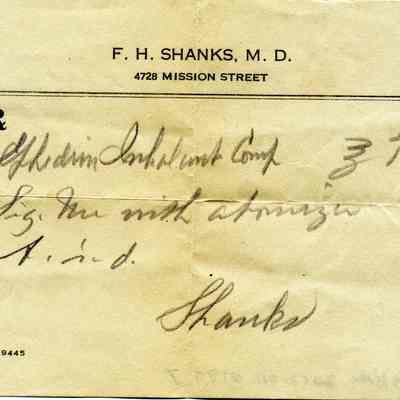 F. H. SHANKS, M. D.
4728 MISSION STREET
℞
Ephedrin Inhalant Comp ℥ 1
Sig. Use with atomizer
t. i. d.
Shanks
9445